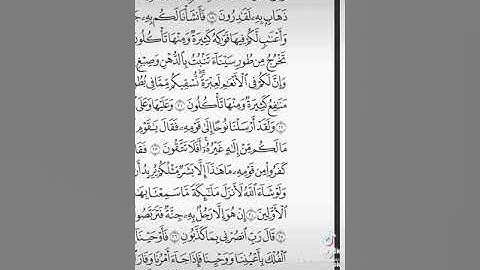 ذَهَابٍ بِهِۦ لَقَٰدِرُونَ ١٨ فَأَنشَأْنَا لَكُم بِهِۦ
وَأَعْنَٰبٍ لَّكُمْ فِيهَا فَوَٰكِهُ كَثِيرَةٌ وَمِنْهَا تَأْكُلُونَ
تَخْرُجُ مِن طُورِ سَيْنَآءَ تَنۢبُتُ بِٱلدُّهْنِ وَصِبْغٍ
وَإِنَّ لَكُمْ فِى ٱلْأَنْعَٰمِ لَعِبْرَةً نُّسْقِيكُم مِّمَّا فِى بُطُو
مَنَٰفِعُ كَثِيرَةٌ وَمِنْهَا تَأْكُلُونَ ٢١ وَعَلَيْهَا وَعَلَى
٢٢ وَلَقَدْ أَرْسَلْنَا نُوحًا إِلَىٰ قَوْمِهِۦ فَقَالَ يَٰقَوْمِ
مَا لَكُم مِّنْ إِلَٰهٍ غَيْرُهُۥٓ أَفَلَا تَتَّقُونَ ٢٣ فَقَا
كَفَرُوا۟ مِن قَوْمِهِۦ مَا هَٰذَآ إِلَّا بَشَرٌ مِّثْلُكُمْ يُرِيدُ أَن
وَلَوْ شَآءَ ٱللَّهُ لَأَنزَلَ مَلَٰٓئِكَةً مَّا سَمِعْنَا بِهَ
ٱلْأَوَّلِينَ ٢٤ إِنْ هُوَ إِلَّا رَجُلٌۢ بِهِۦ جِنَّةٌ فَتَرَبَّصُو
٢٥ قَالَ رَبِّ ٱنصُرْنِى بِمَا كَذَّبُونِ ٢٦ فَأَوْحَيْنَآ
ٱلْفُلْكَ بِأَعْيُنِنَا وَوَحْيِنَا فَإِذَا جَآءَ أَمْرُنَا وَفَارَ